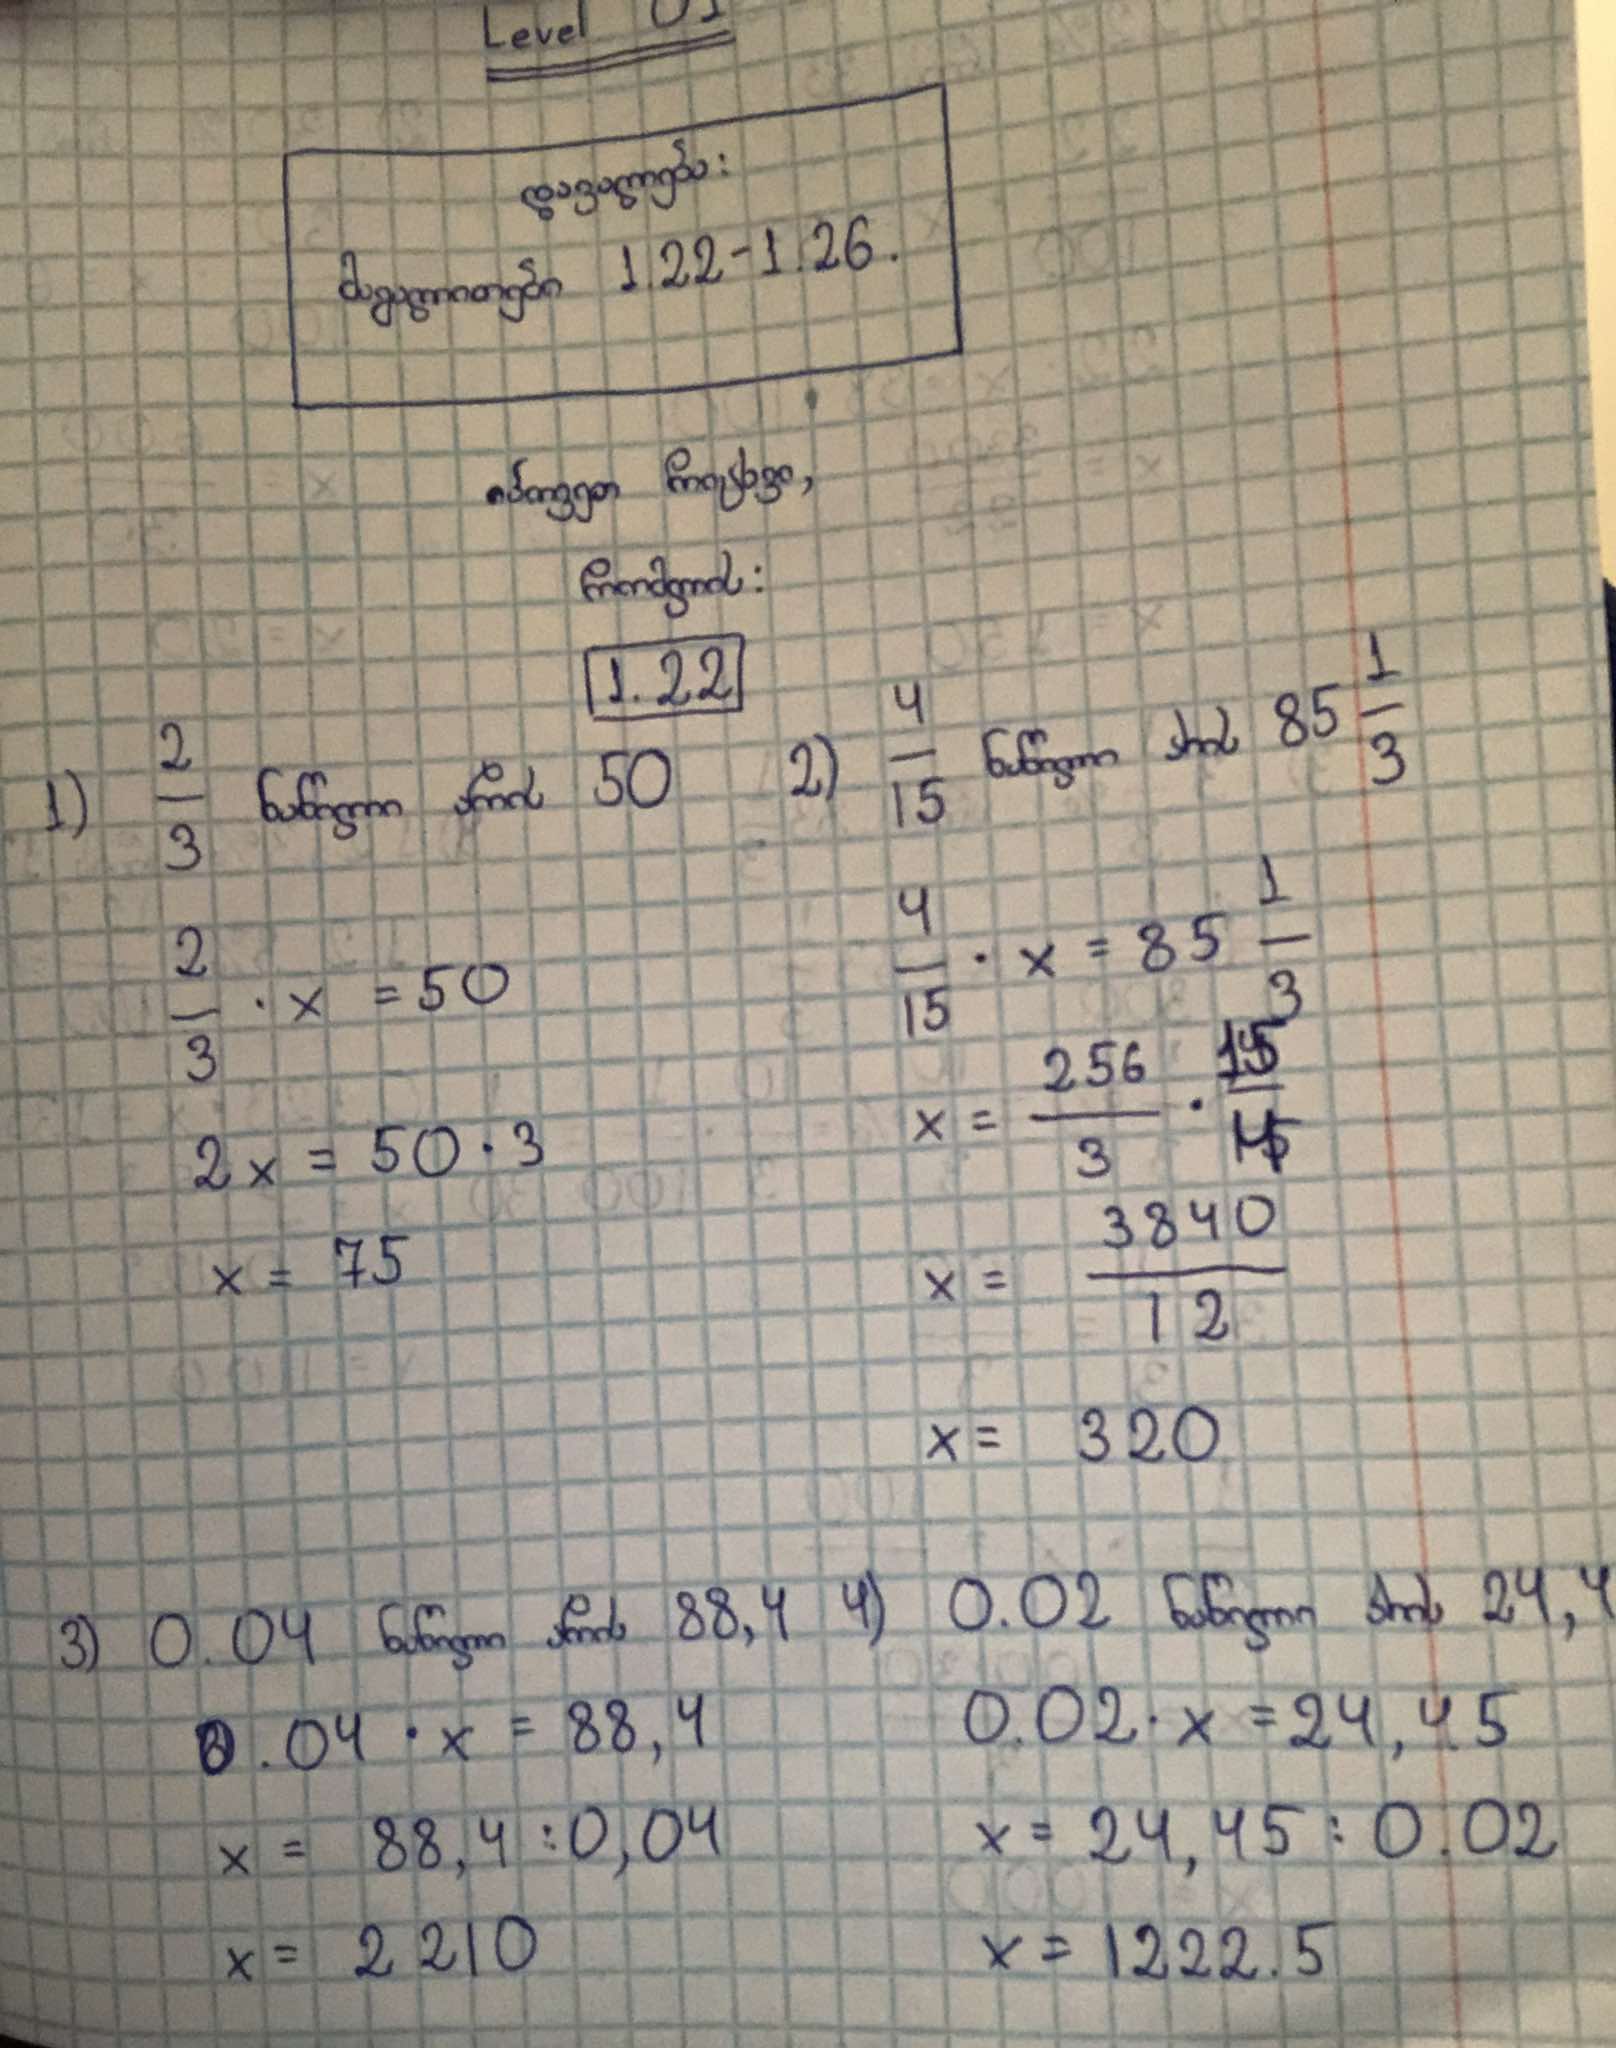 Level 01
დავალება:
მაგალითები 1.22-1.26.
იპოვეთ რიცხვი,
რომლის:
1.22
1) 2/3 ნაწილი არის 50
2/3 · x = 50
2x = 50 · 3
x = 75
2) 4/15 ნაწილი არის 85 1/3
4/15 · x = 85 1/3
x = 256/3 · 15/4
x = 3840/12
x = 320
3) 0.04 ნაწილი არის 88,4
0.04 · x = 88,4
x = 88,4 : 0,04
x = 2210
4) 0.02 ნაწილი არის 24,4
0.02 · x = 24,45
x = 24,45 : 0.02
x = 1222.5